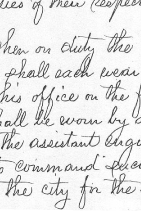 ies of their respec
hen on duty the
shall each wear
his office on the f
hall be worn by a
the assistant engi
to command suc
the city for the